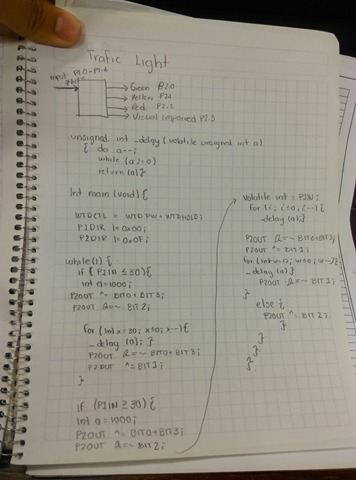 Trafic Light
input
P1.0-P1.6
7bits
Green P2.0
Yellow P2.1
Red P2.2
Visual Impaired P2.3
unsigned int _delay (volatile unsigned int a)
{ do a--;
while (a!=0)
return (a)}
Int main (void) {
WTDCTL = WTDPW + WTDHOLD;
P1DIR |= 0x00;
P2DIR |= 0x0F;
while(1) {
if (P1IN ≤ 30) {
int a=1000;
P2OUT ^= BIT0+BIT3;
P2OUT &=~ BIT2;
for (int x=30; x>0; x--) {
_delay (a); }
P2OUT &=~ BIT0+BIT3;
P2OUT ^= BIT1;
}
if (P1IN ≥ 30) {
int a=1000;
P2OUT ^= BIT0+BIT3;
P2OUT &=~ BIT2;
Volatile int = P1IN;
for (i, i>0; i--) {
_delay (a);}
P2OUT &=~ BIT0+BIT3;
P2OUT ^= BIT1;
for (int w=0; w--) {
_delay (a)}
P2OUT &=~ BIT1;
}
else {
P2OUT ^= BIT2;
}
}
}
}